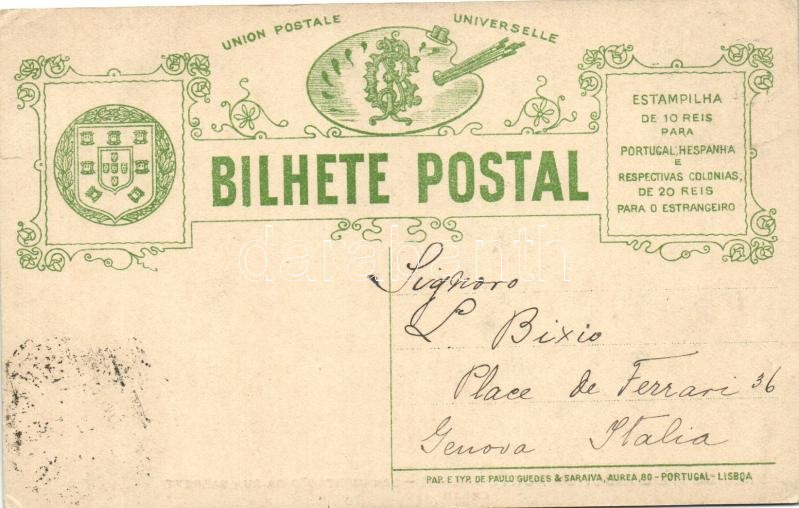 UNION POSTALE UNIVERSELLE
BILHETE POSTAL
ESTAMPILHA
DE 10 REIS
PARA
PORTUGAL, HESPANHA
E
RESPECTIVAS COLONIAS;
DE 20 REIS
PARA O ESTRANGEIRO
Signoro
L Bixio
Place de Ferrari 36
Genova Italia
PAP. E TYP. DE PAULO GUEDES & SARAIVA, AUREA, 80 - PORTUGAL - LISBOA
darabanth